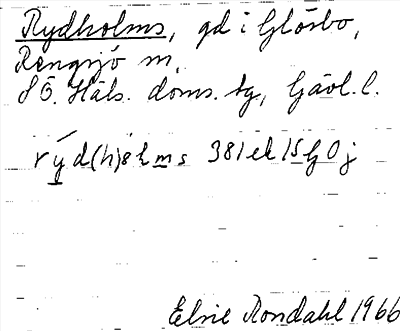 Rydholms, gd i Glösbo,
Rengsjö sn,
SÖ. Häls. doms. bg, Gävl. l.
rýd(h)ɵlms 381 ek 15 G 0 j
Elsie Rondahl 1966